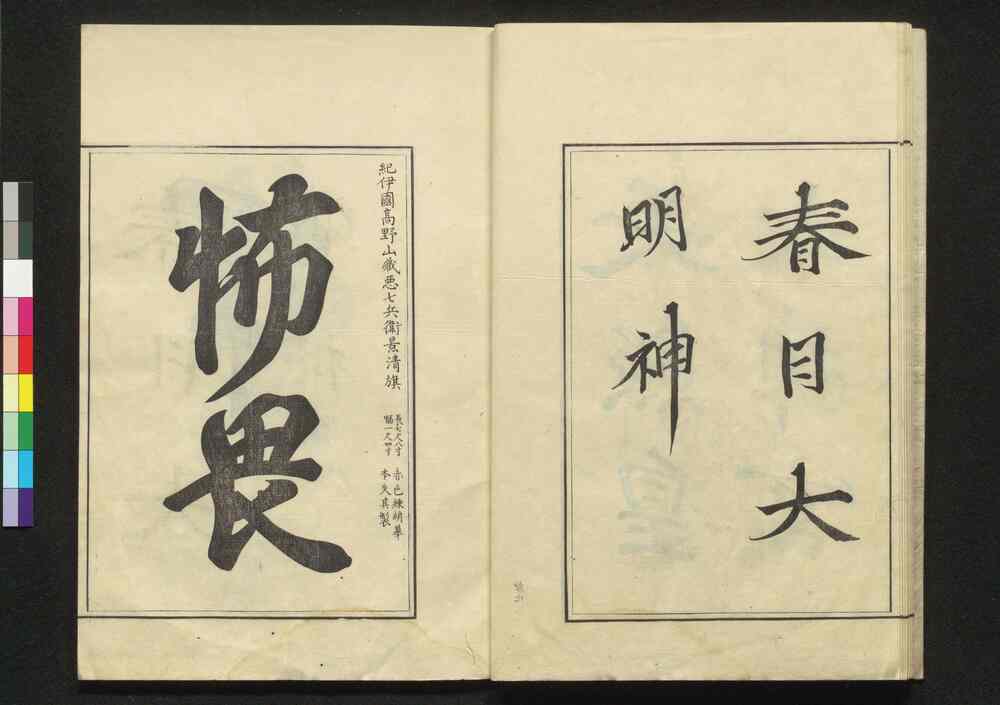 春日大
明神
紀伊國高野山藏悪七兵衛景清旗
長七尺八寸
幅一尺四寸
赤色練絹摹
本失其製
怖畏